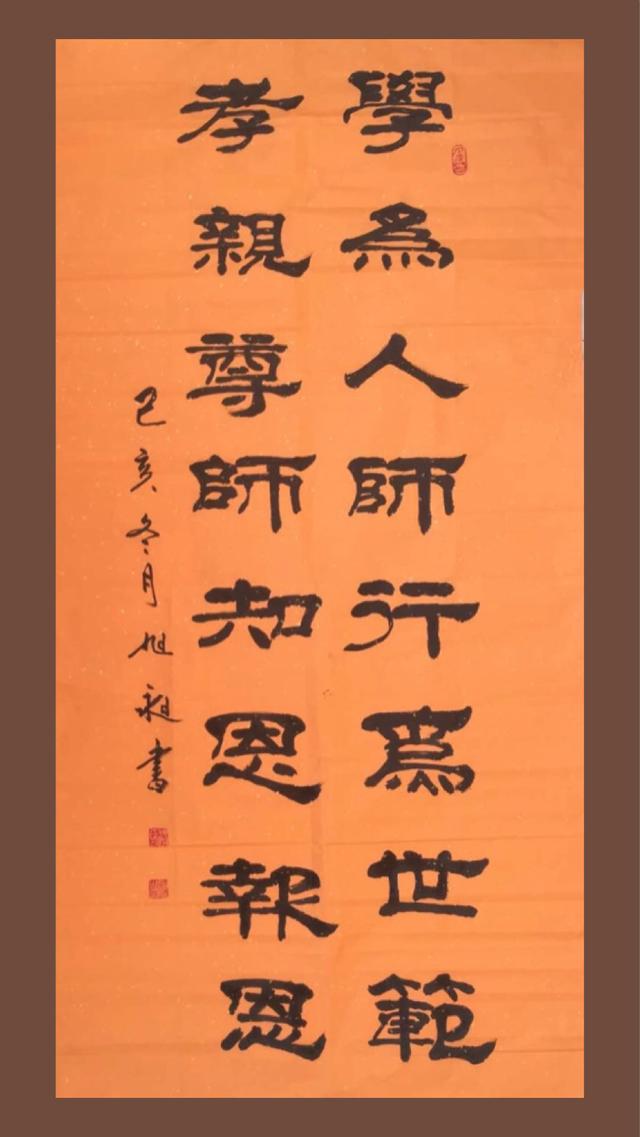 學為人師行為世範
孝親尊師知恩報恩
己亥冬月旭昶書